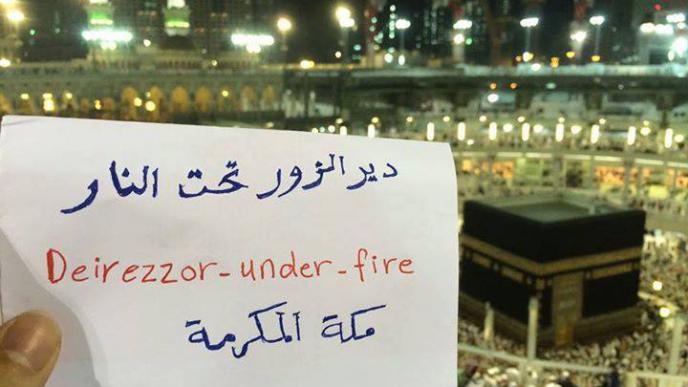 دير الزور تحت النار
Deirezzor-under-fire
مكة المكرمة